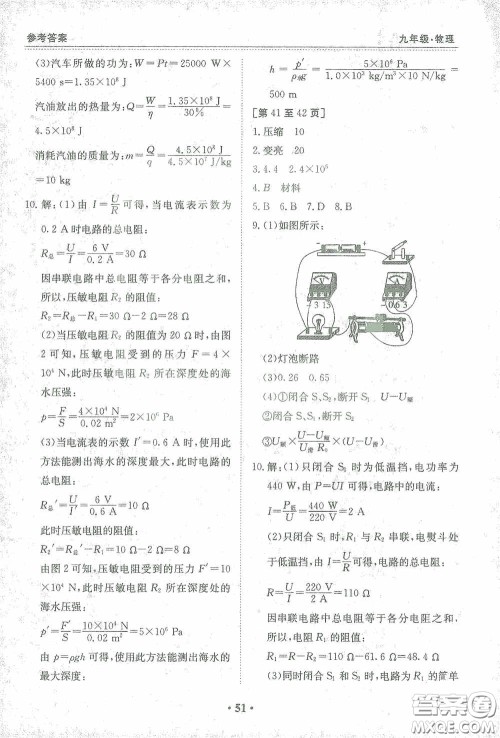 参考答案
九年级·物理
(3)汽车所做的功为:W=Pt=25000 W×
5400 s=1.35×10⁸ J
汽油放出的热量为:Q=W/η=1.35×10⁸ J/30%=
4.5×10⁸ J
消耗汽油的质量为:m=Q/q=4.5×10⁸ J/4.5×10⁷ J/kg
=10 kg
10.解:(1)由 I=U/R可得,当电流表示数为
0.2 A时电路的总电阻:
R总=U/I=6 V/0.2 A=30 Ω
因串联电路中总电阻等于各分电阻之和,
所以,压敏电阻 R₂ 的阻值:
R₂=R总-R₁=30 Ω-2 Ω=28 Ω
(2)当压敏电阻的阻值为 20 Ω 时,由图
2 可知,压敏电阻受到的压力 F=4×
10⁴ N,此时压敏电阻 R₂ 所在深度处的海
水压强:
p=F/S=4×10⁴ N/0.02 m²=2×10⁶ Pa
(3)当电流表的示数 I′=0.6 A 时,使用此
方法能测出海水的深度最大,此时电路的
总电阻:
R总′=U/I′=6 V/0.6 A=10 Ω
此时压敏电阻的阻值:
R₂′=R总′-R₁=10 Ω-2 Ω=8 Ω
由图 2 可知,压敏电阻受到的压力 F′=10
×10⁴ N,此时压敏电阻 R₂ 所在深度处的
海水压强:
p′=F′/S=10×10⁴ N/0.02 m²=5×10⁶ Pa
由 p=ρgh 可得,使用此方法能测出海水的
最大深度:
h=p′/ρ海g=5×10⁶ Pa/1.0×10³ kg/m³×10 N/kg=
500 m
[第 41 至 42 页]
1.压缩 10
2.变亮 20
3.4.4 2.4×10⁵
4.B 材料
5.B 6.B 7.D 8.D
9.(1)如图所示:
- 3 15
- 0.6 3
(2)灯泡断路
(3)0.26 0.65
(4)①闭合 S、S₂,断开 S₁ U-U额
②闭合 S、S₁,断开 S₂
10.解:(1)只闭合 S₁ 时为低温挡,电功率为
440 W,由 P=UI 可得,电路中的电流:
I=P/U=440 W/220 V=2 A
(2)只闭合 S₁ 时,R₁ 与 R₂ 串联,电熨斗处
于低温挡,由 I=U/R可得,电路的总电阻:
R=U/I=220 V/2 A=110 Ω
因串联电路中总电阻等于各分电阻之和,
所以,电阻 R₁ 的阻值:
R₁=R-R₂=110 Ω-61.6 Ω=48.4 Ω
(3)同时闭合 S₁ 和 S₂ 时,电路为 R₁ 的简单
· 51 ·